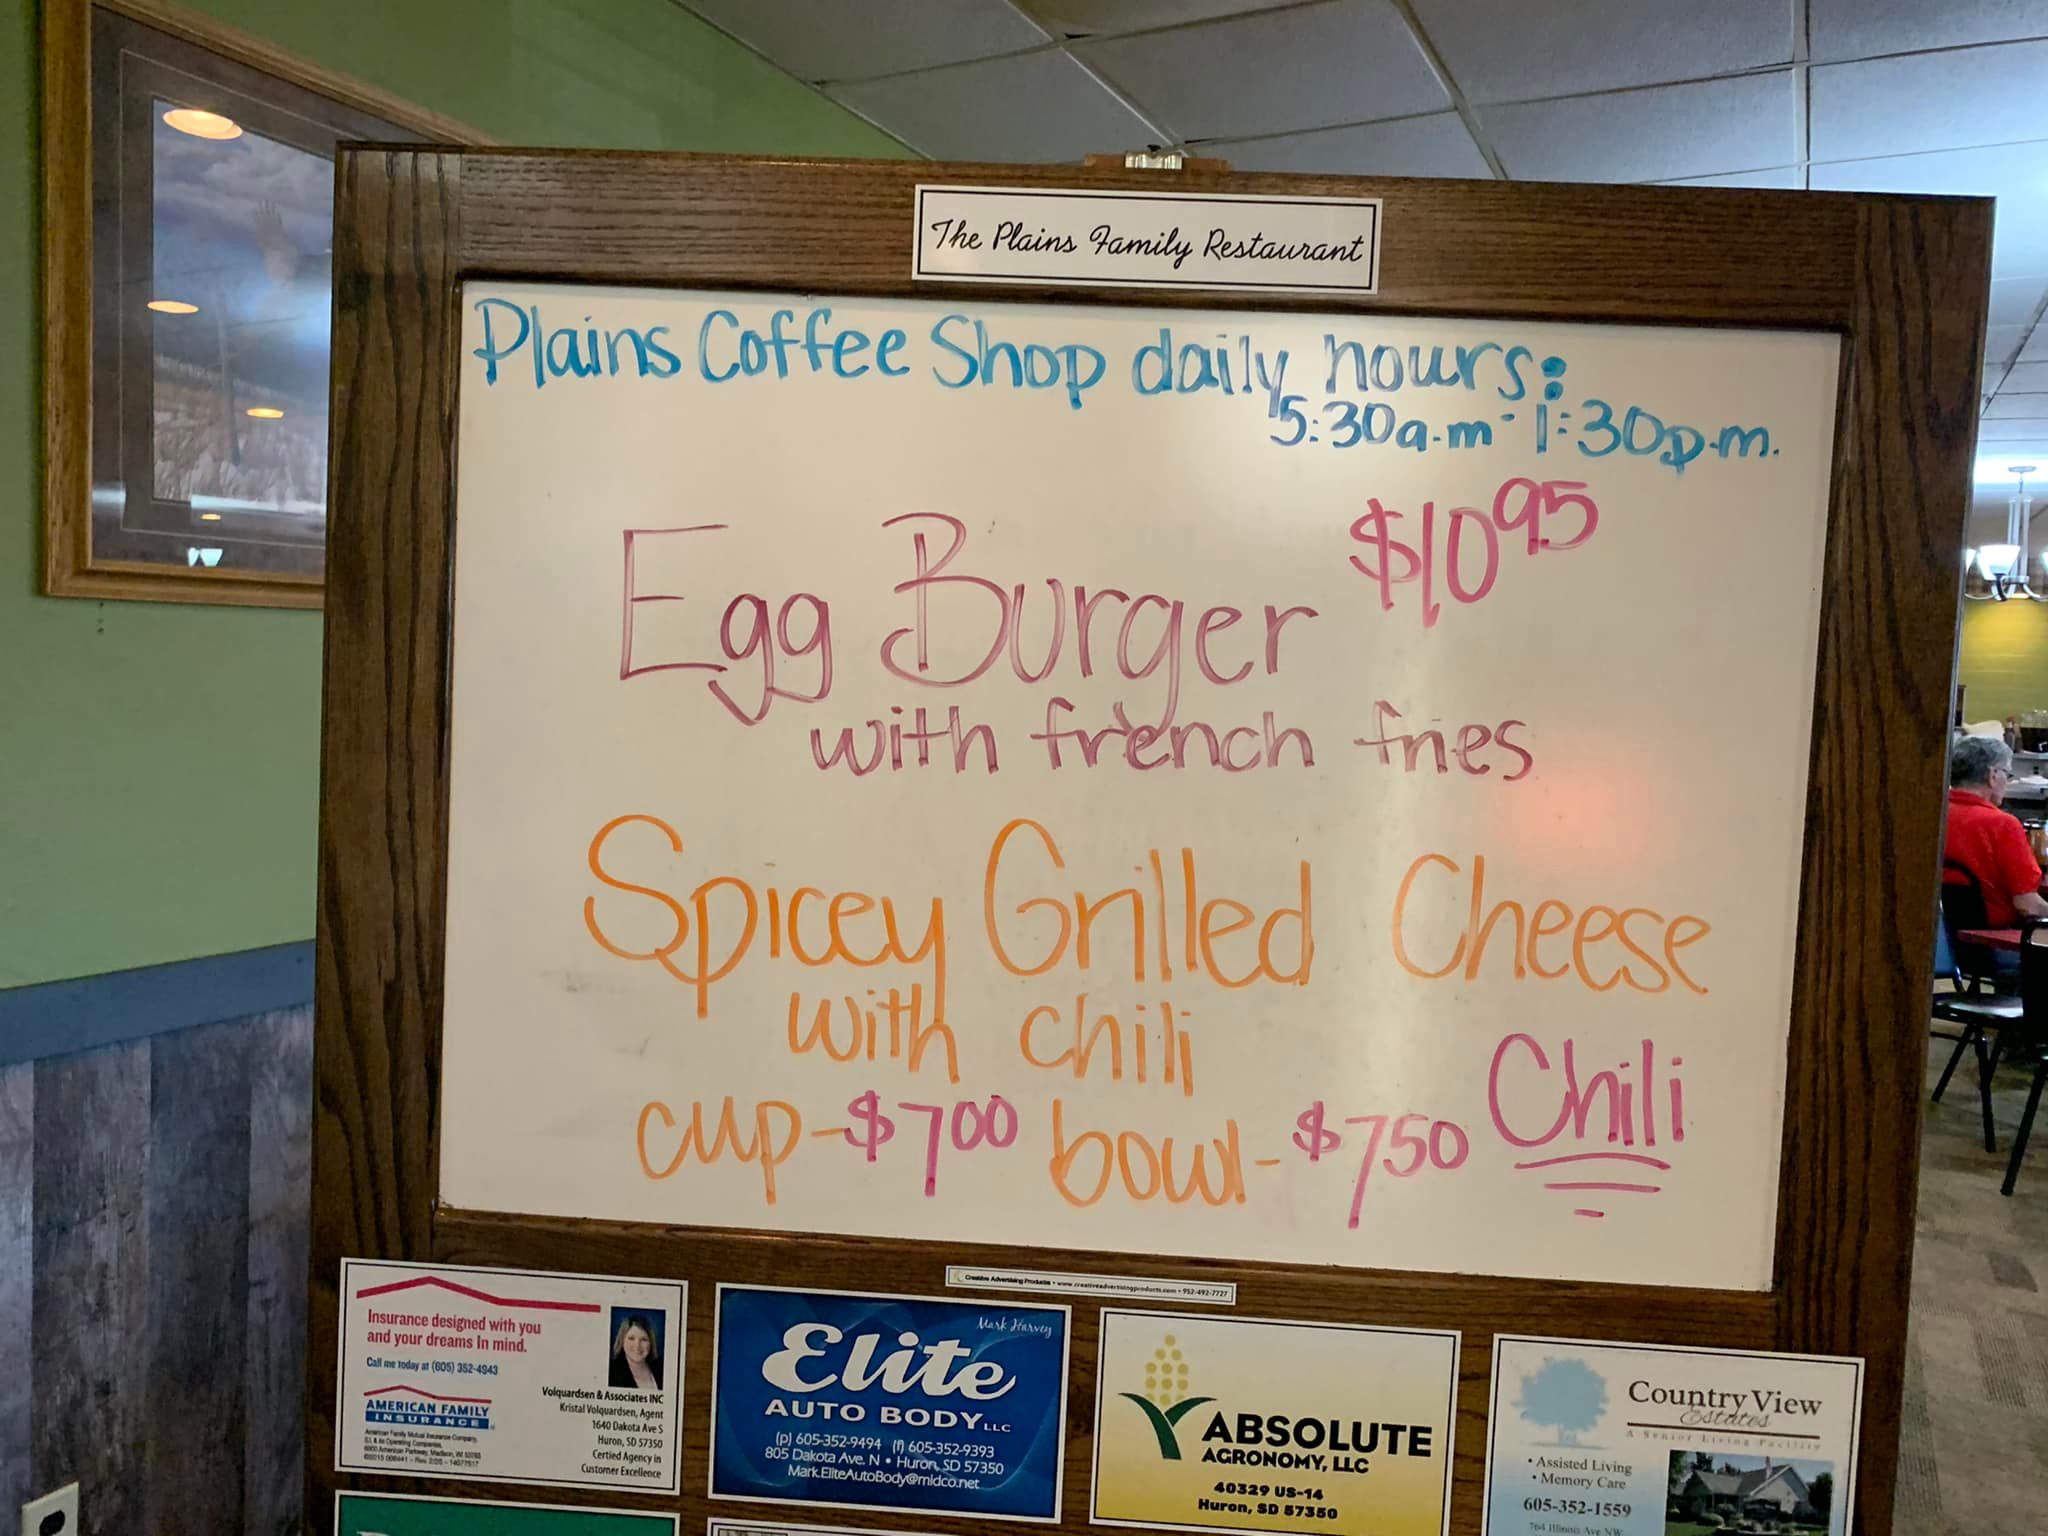 The Plains Family Restaurant
Plains Coffee Shop daily hours:
5:30a.m - 1:30p.m.
Egg Burger $10.95
with french fries
Spicey Grilled Cheese
with chili
cup-$7.00 bowl-$7.50 Chili
Creative Advertising Products • www.creativeadvertisingproducts.com • 952-492-7727
Insurance designed with you
and your dreams In mind.
Call me today at (605) 352-4943
AMERICAN FAMILY
INSURANCE
American Family Mutual Insurance Company,
S.I. & its Operating Companies,
6000 American Parkway, Madison, WI 53783
Volquardsen & Associates INC
Kristal Volquardsen, Agent
1640 Dakota Ave S
Huron, SD 57350
Certied Agency in
Customer Excellence
Mark Harvey
Elite
AUTO BODY LLC
(p) 605-352-9494 (f) 605-352-9393
805 Dakota Ave. N • Huron, SD 57350
Mark.EliteAutoBody@midco.net
ABSOLUTE
AGRONOMY, LLC
40329 US-14
Huron, SD 57350
Country View
Estates
A Senior Living Facility
• Assisted Living
• Memory Care
605-352-1559
764 Illinois Ave NW